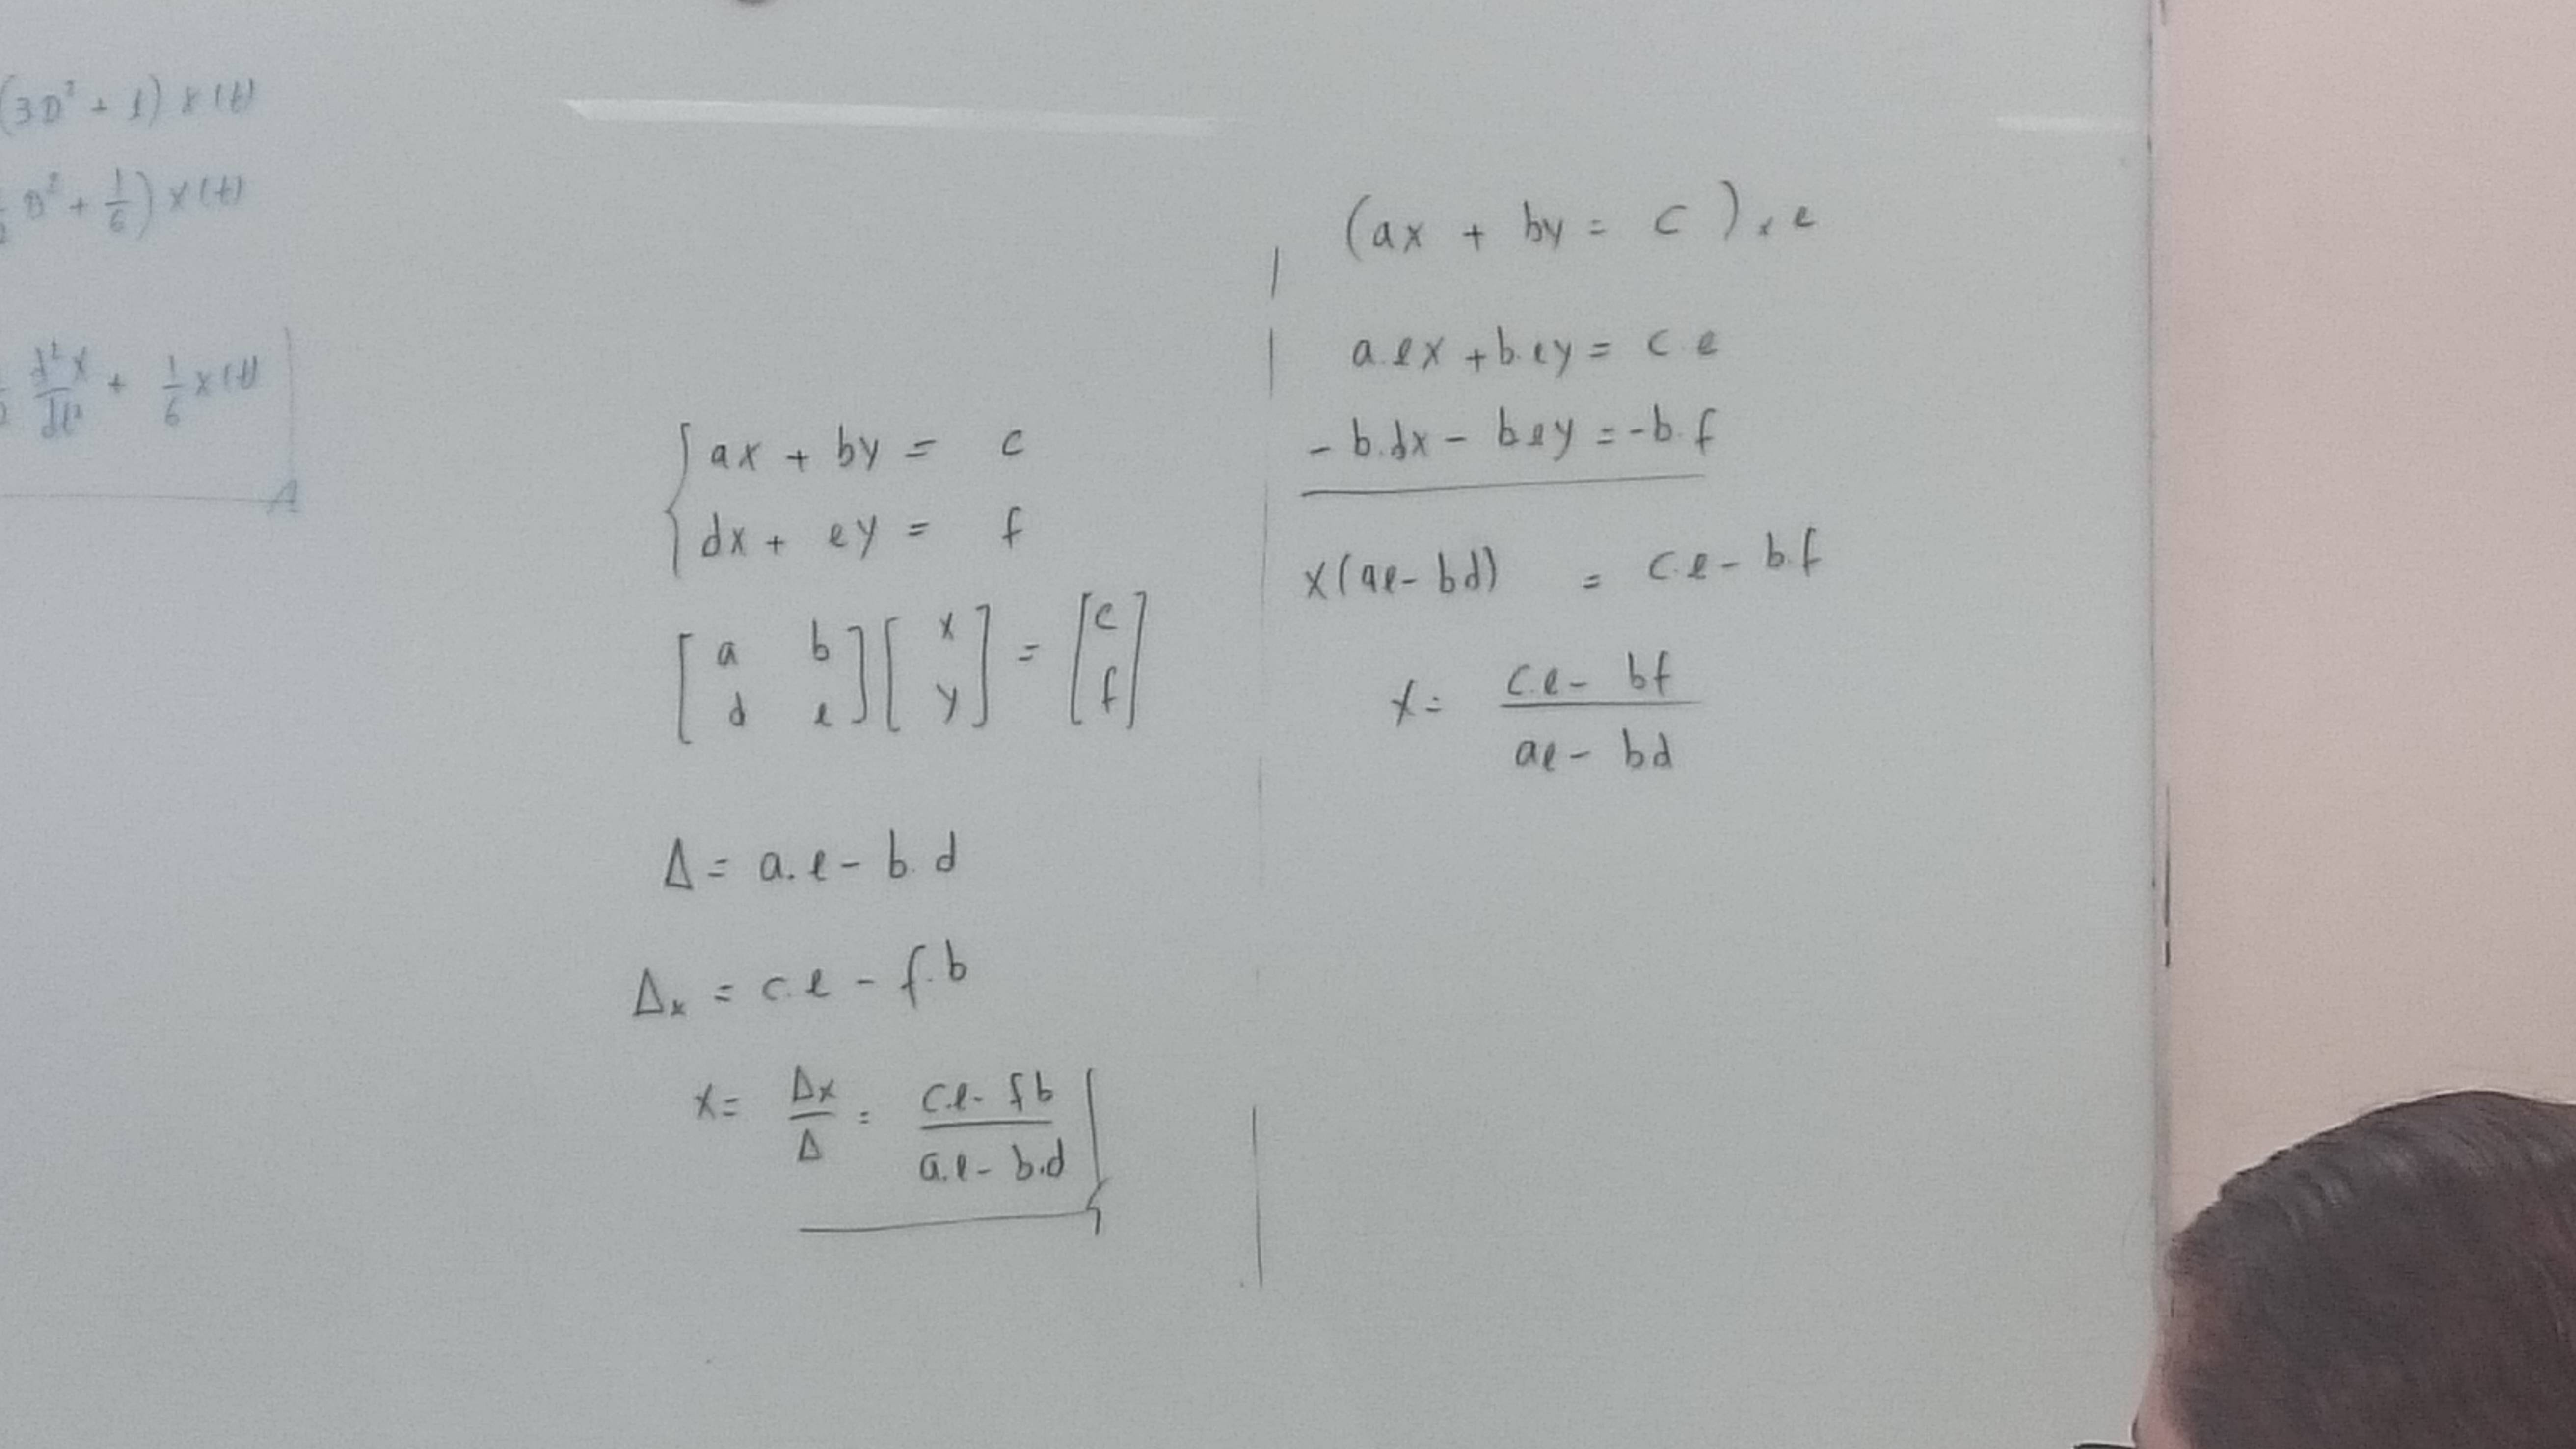 (3D² + 1) x(t)
D² + 1/6) x(t)
d²x/dt² + 1/6 x(t)
{ ax + by = c
dx + ey = f
[ a b ] [ x ] = [ c ]
[ d e ] [ y ] [ f ]
Δ = a.e - b.d
Δx = c.e - f.b
x = Δx/Δ = (c.e - f b)/(a.e - b.d)
(ax + by = c) x e
a.ex + b.ey = c.e
- b.dx - bey = -b.f
x(ae - bd) = c.e - b.f
x = (c.e - bf)/(ae - bd)